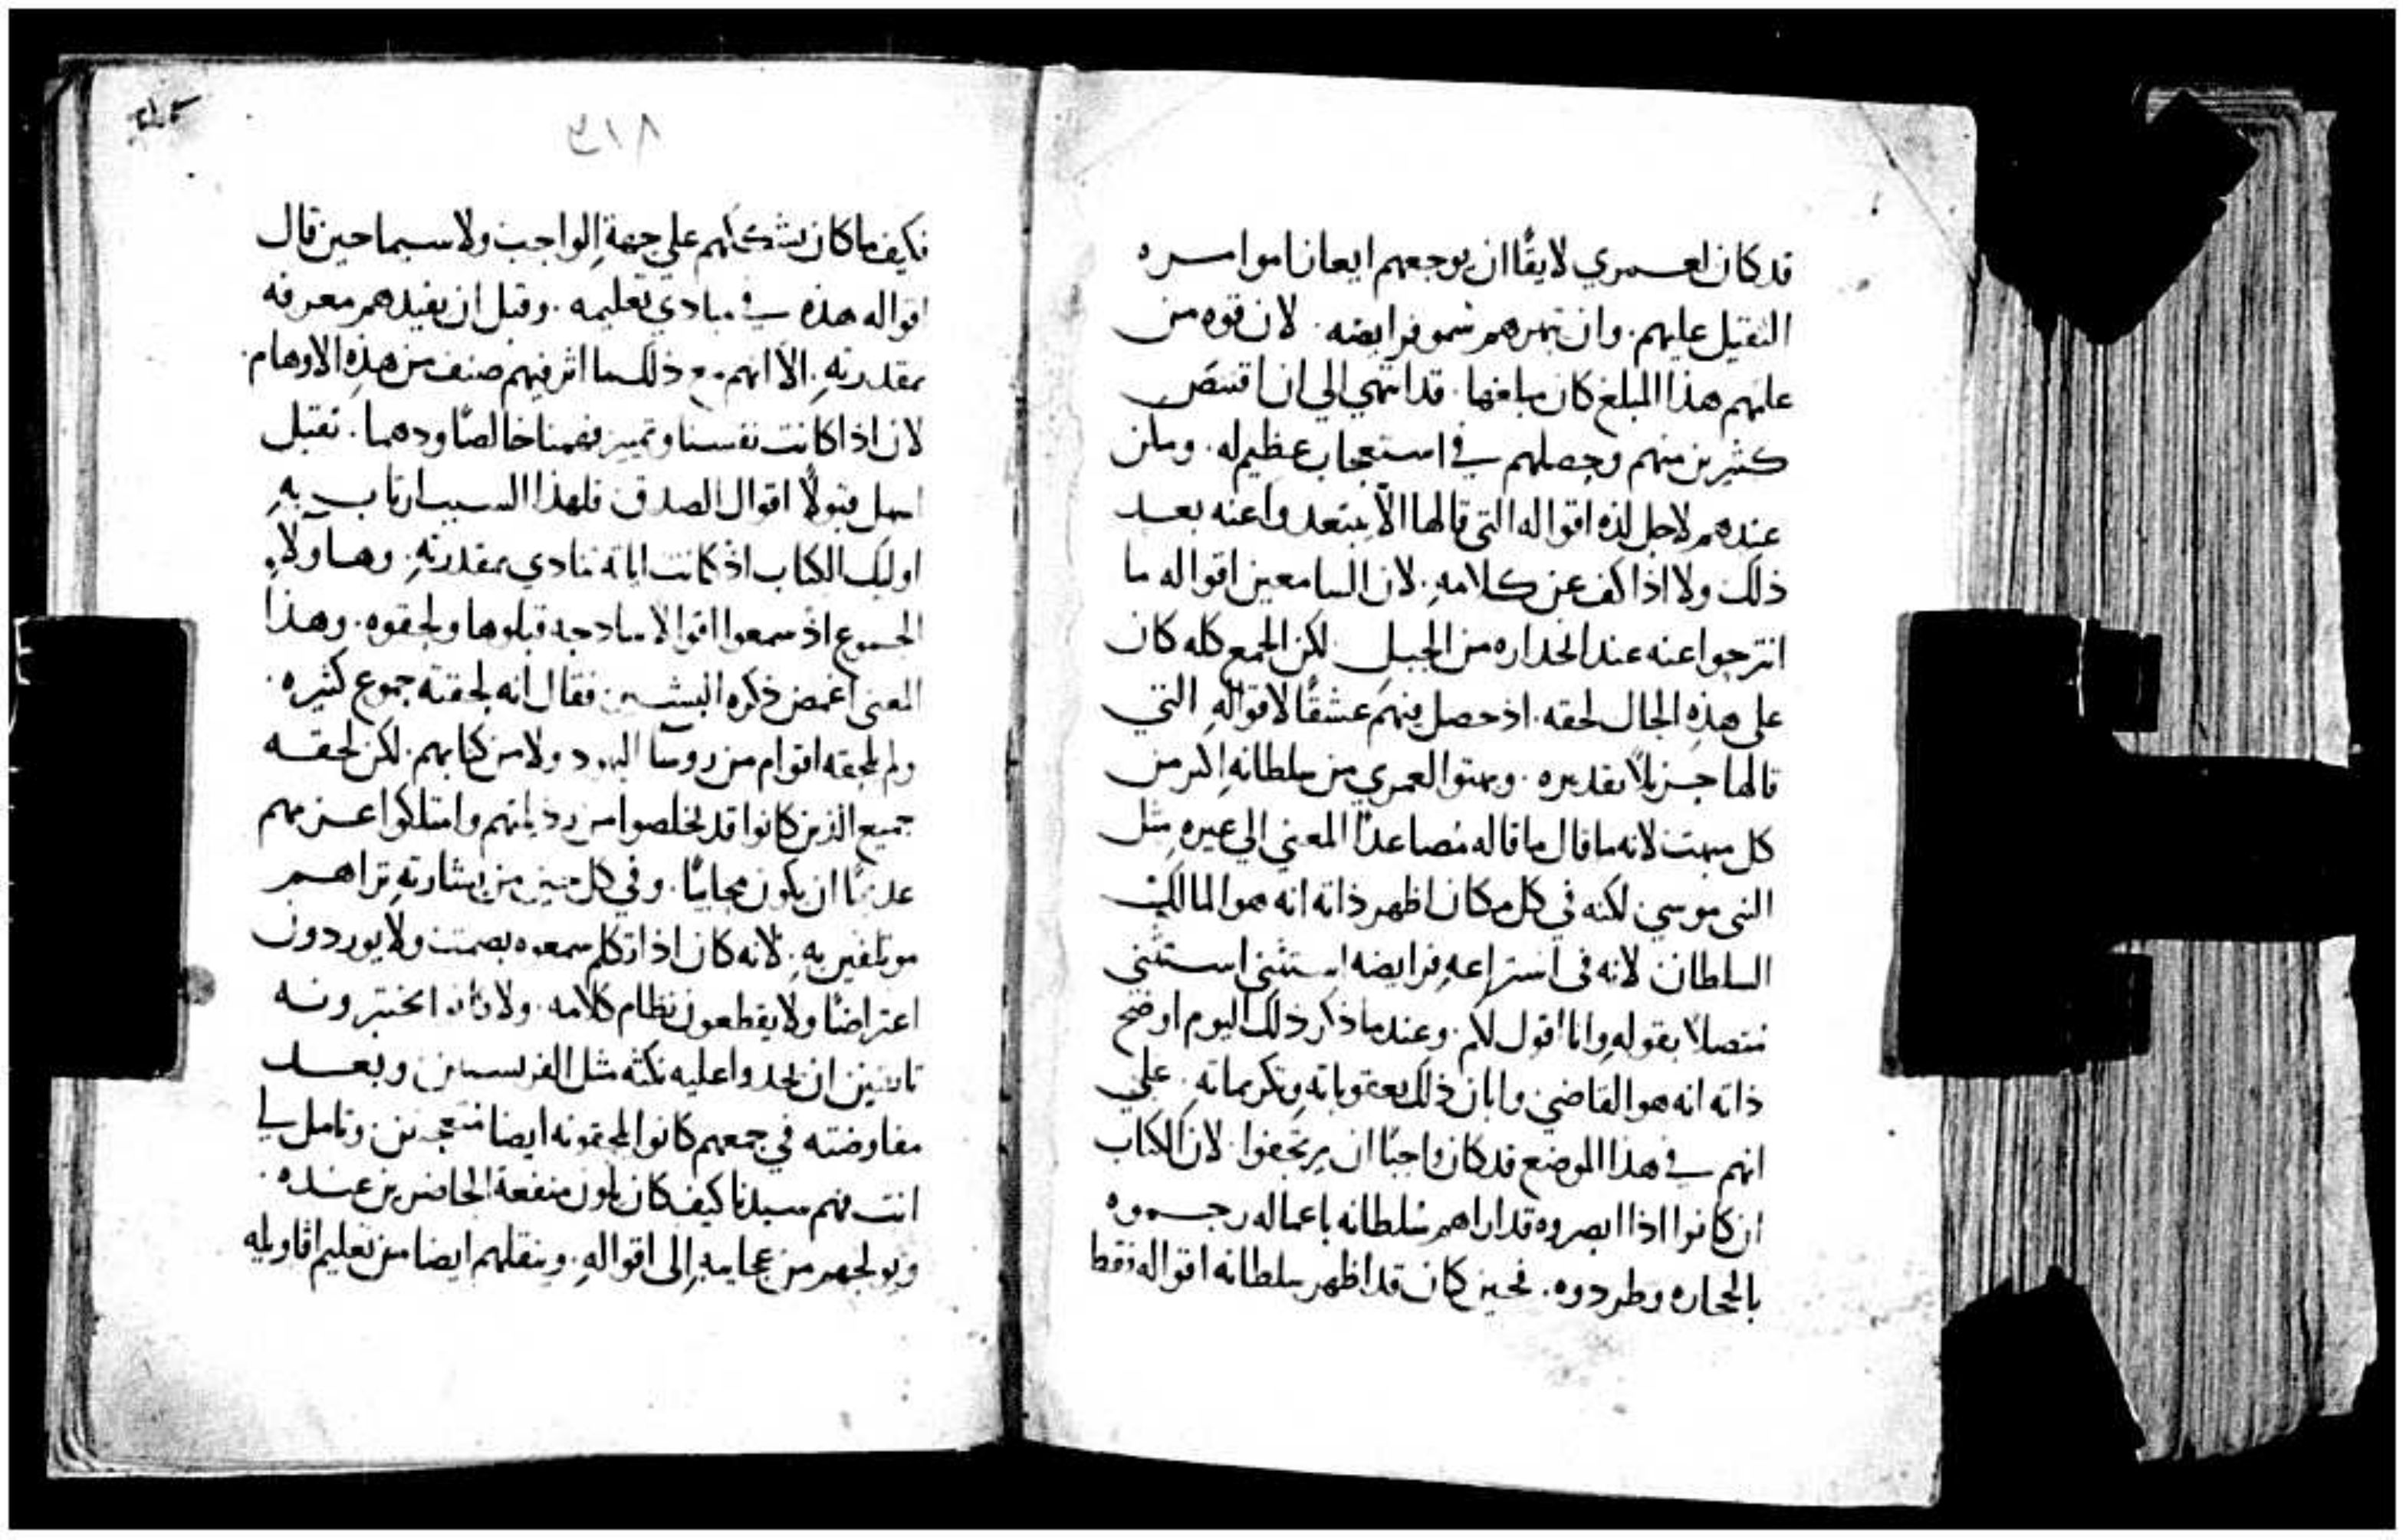 قد كان لعمري لايقًا ان يوجعهم ايعانا موامره
الثقيل عليهم. وان تبهرهم سمو فرايضه. لان قوه من
علمهم هذا المبلغ كان مبلغها. قد انتهي الي ان اقتنص
كثيرين منهم وحصلهم في استعجاب عظيم له. وملن
عندهم لاجل لذه اقواله التي قالها الا يبتعدوا عنه بعد
ذلك ولا اذا كف عن كلامهِ. لان السامعين اقواله ما
انترجوا عنه عند انحداره من الجبل لكن الجمع كله كان
علي هذهِ الحال لحقه. اذ حصل فيهم عشقًا لاقوالهِ التي
قالها جزيلاً تقديره. وبهتوا لعمري من سلطانهِ اكثر من
كل مبهت لانه ما قال ما قاله مُصاعدًا المعني الي غيرهِ مثل
النبي موسي لكنه في كل مكان اظهر ذاته انه هو المالك
السلطان لانه في اشتراعهِ فرايضه استثني استثني
متصلا بقولهِ وانا اقول لكم. وعند ما ذكر ذلك اليوم اوضح
ذاته انه هو القاضي وابان ذلك بعقوباتهِ وتكريماتهِ. علي
انهم في هذا الموضع قد كان واجبًا ان يرتجفوا. لان الكتاب
ان كانوا اذا ابصروه قد اراهم سلطانه باعماله رجموه
بالحجاره وطردوه. فحين كان قد اظهر سلطانه اقواله فقط
٣١٨
فكيف ما كان يشككهم علي جههِ الواجب ولا سيما حين قال
اقواله هذه في مبادي تعليمه. وقبل ان يفيدهم معرفه
بمقدرتهِ. الا انهم مع ذلك ما اثر فيهم صنف من هذهِ الاوهام.
لان اذا كانت نفسنا وتمييز فهمنا خالصًا ودهما. تقبل
اسهل قبولاً اقوال الصدق فلهذا السبب ارتاب بهِ
اوليك الكتاب اذ كانت اياته تنادي بمقدرتهِ. وهاولاءِ
الجموع اذ سمعوا اقوالا ساذجه قبلوها ولحقوه. وهذا
المعني اغمض ذكره البشير فقال انه لحقته جموع كثيره.
ولم يلحقه اقوام من روسا اليهود ولا من كتابهم. لكن لحقه
جميع الذين كانوا قد تخلصوا من رذيلتهم وامتلكوا عزمهم
عديمًا ان يكون محابيًا. وفي كل حين من بشارتهِ تراهم
موتلفين بهِ. لانه كان اذا تكلم سمعوه بصمت ولا يوردون
اعتراضًا ولا يقطعون نظام كلامه. ولا كانوا يختبرونه
تايقين ان يجدوا عليه نكثه مثل الفريسيين وبعد
مفاوضته في جمعهم كانوا يلحقونه ايضا متعجبين. وتامل لي
انت فهم سيدنا كيف كان يلون منفعة الحاضرين عنده.
ويولجهم من عجايبهِ الي اقوالهِ. وينقلهم ايضا من تعليم اقاويله